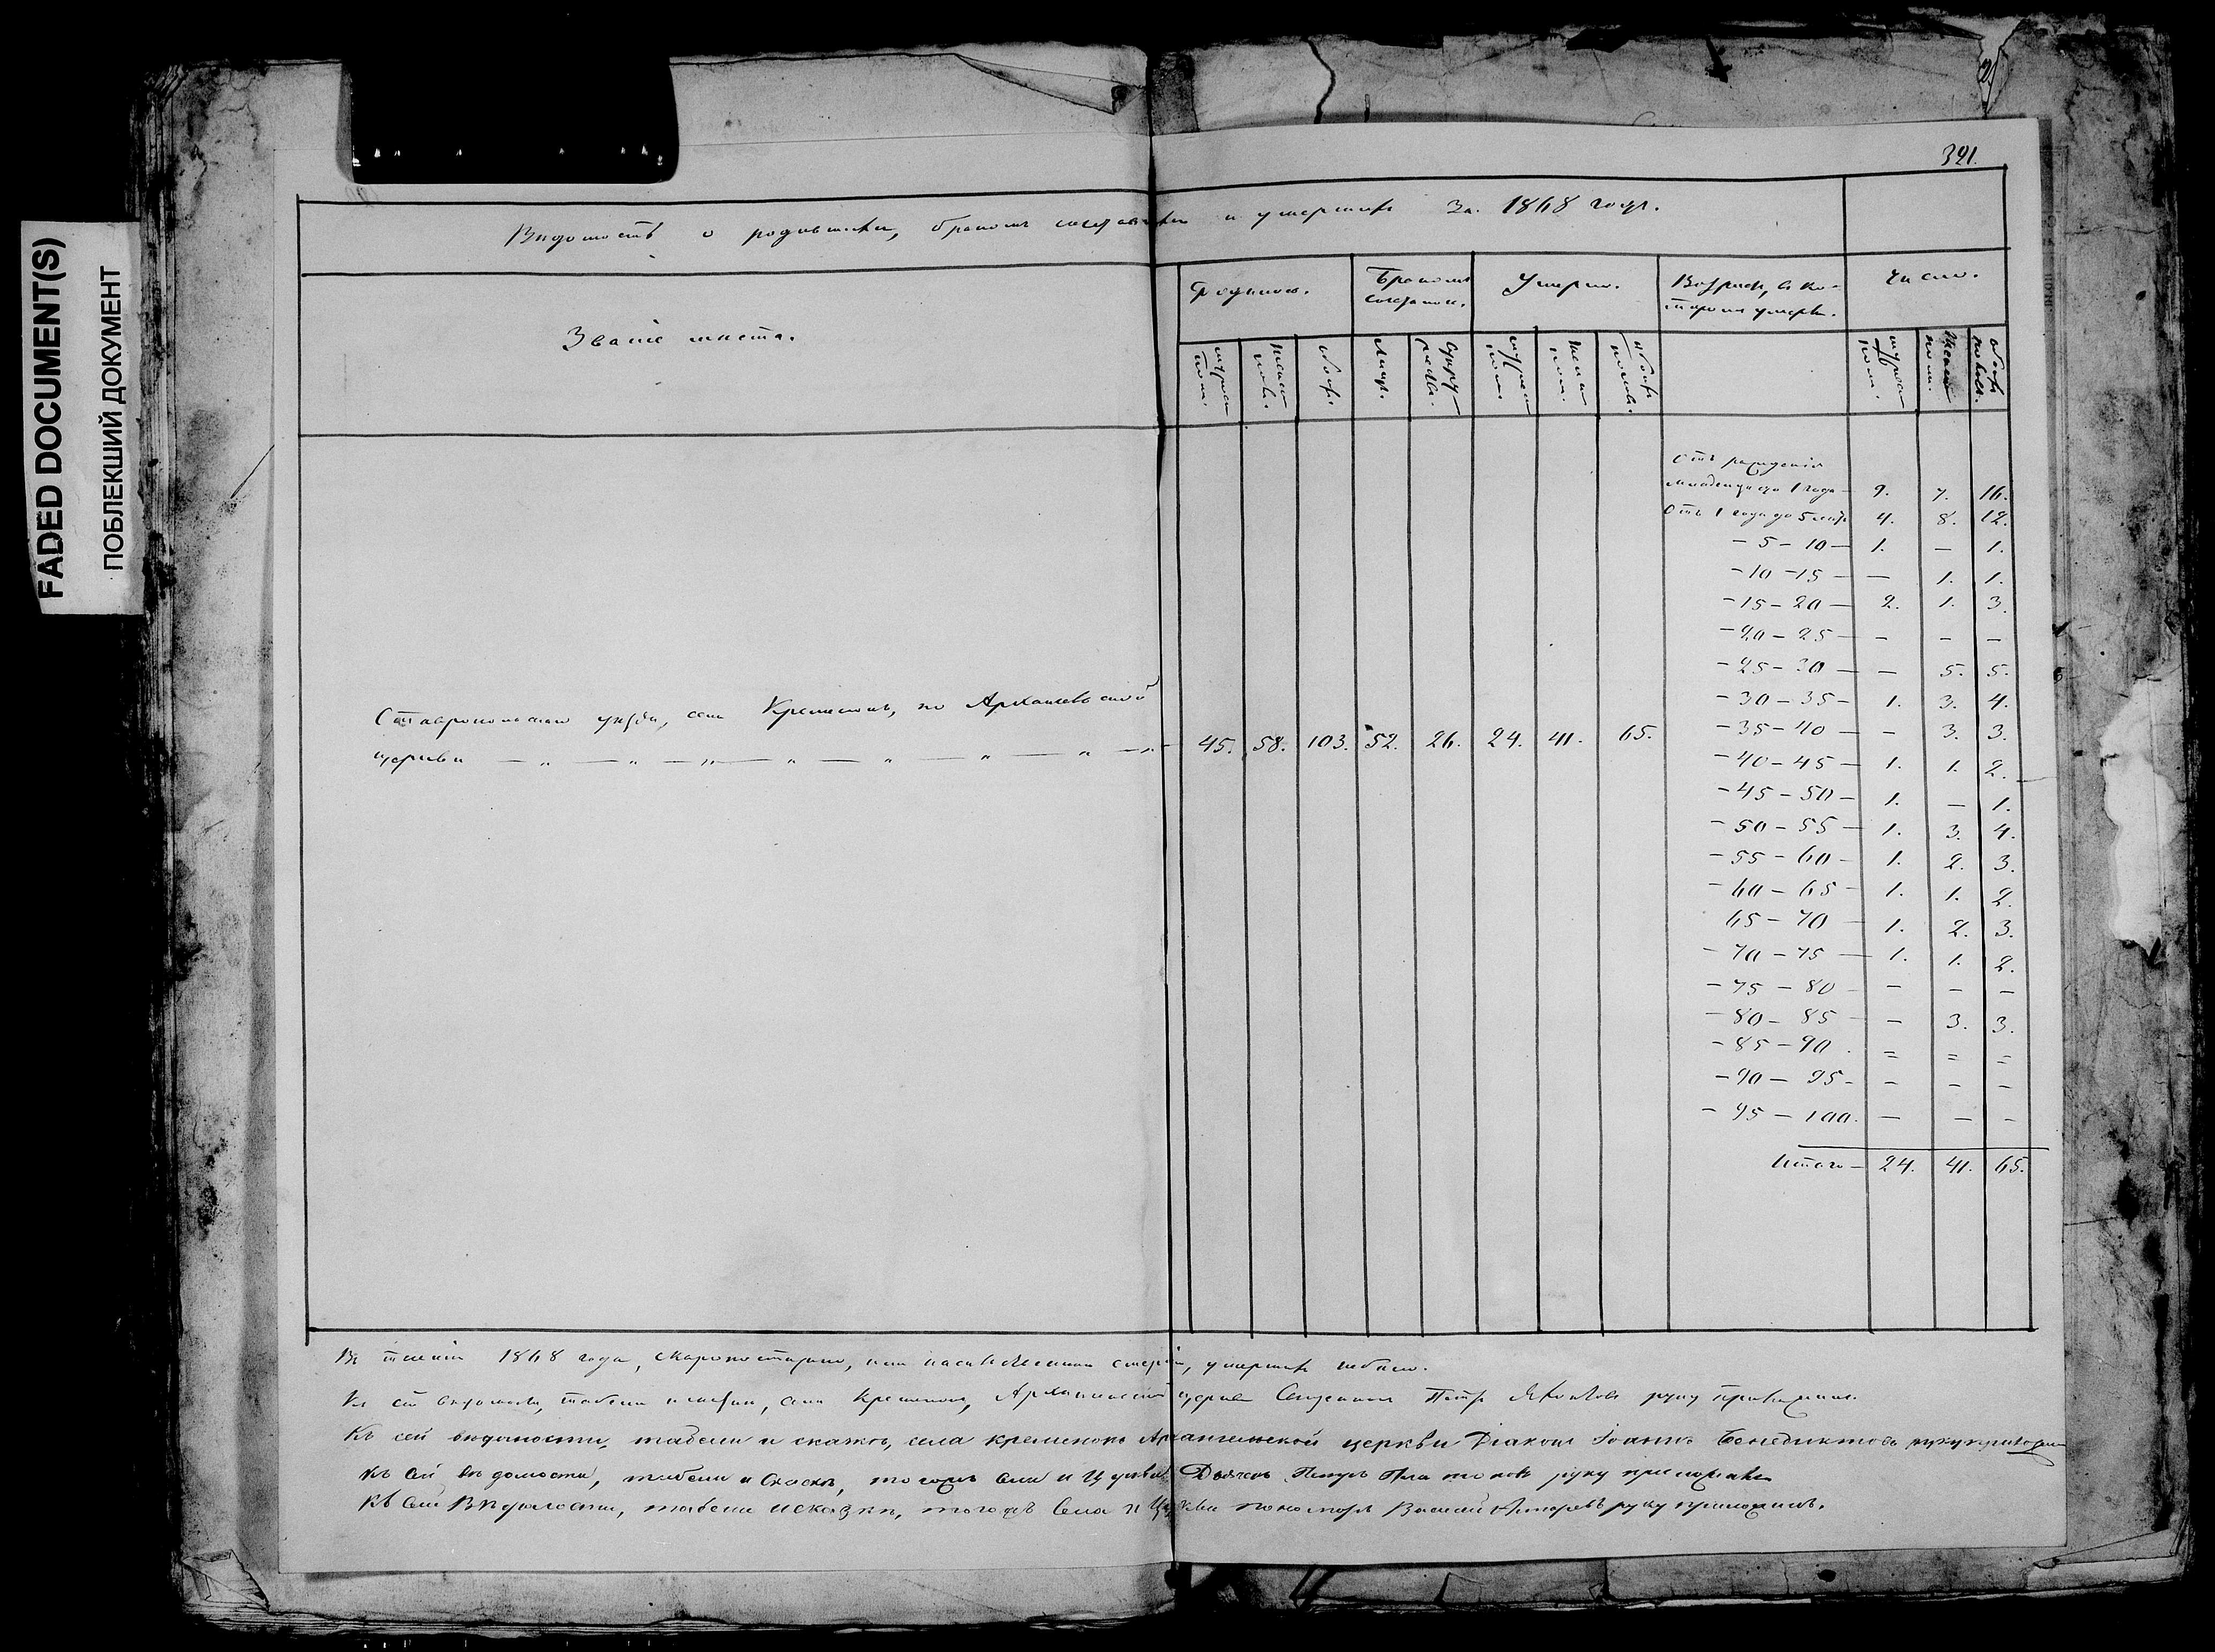 FADED DOCUMENT(S)
ПОБЛЕКШИЙ ДОКУМЕНТ
391.
Вѣдомость о родившихся, бракомъ сочетавшихся и умершихъ За 1868 годъ.
Званіе мѣста.
Родилось.
Бракомъ сочетали.
Умерло.
Возрастъ, въ которомъ умерли.
Число.
мужеск. пола.
женск. пола.
обоих.
Лицъ.
Супружествъ.
мужеск. пола.
женск. пола.
обоихъ половъ.
мужеск. пола.
женск. пола.
обоихъ половъ.
Отъ рожденія
младенца до 1 года — 9. 7. 16.
Отъ 1 года до 5 лѣтъ 4. 8. 12.
— 5 — 10 — 1. — 1.
— 10 — 15 — — 1. 1.
— 15 — 20 — 2. 1. 3.
— 20 — 25 — — — —
— 25 — 30 — — 5. 5.
— 30 — 35 — 1. 3. 4.
— 35 — 40 — — 3. 3.
— 40 — 45 — 1. 1. 2.
— 45 — 50 — 1. — 1.
— 50 — 55 — 1. 3. 4.
— 55 — 60 — 1. 2. 3.
— 60 — 65 — 1. 1. 2.
65 — 70 — 1. 2. 3.
— 70 — 75 — 1. 1. 2.
— 75 — 80 — — — —
— 80 — 85 — — 3. 3.
— 85 — 90 . = = =
— 90 — 95 - — — —
— 95 — 100. — — —
Итого — 24. 41. 65.
Ставропольскаго уѣзда, села Кременокъ, по Архангельской
церкви — „ — „ — „ — „ — „ — „ — „ — „ — 45. 58. 103. 52. 26. 24. 41. 65.
Въ теченіи 1868 года, скоропостижно, или насильственною смертію, умершихъ небыло.
Къ сей вѣдомости, табели и сказки, села Кременокъ, Архангельской церкви Священникъ Петръ руку приложилъ.
Къ сей вѣдомости, табели и сказкѣ, села Кременокъ Архангельской церкви Діаконъ Іоаннъ Бенедиктовъ руку приложилъ
Къ сей вѣдомости, табели и сказкѣ, тогожъ села и Церкви Дьячекъ Платоновъ руку приложилъ
Къ сей Вѣдомости, табели и сказкѣ, тогожъ Села и Церкви пономарь Василій руку приложилъ.